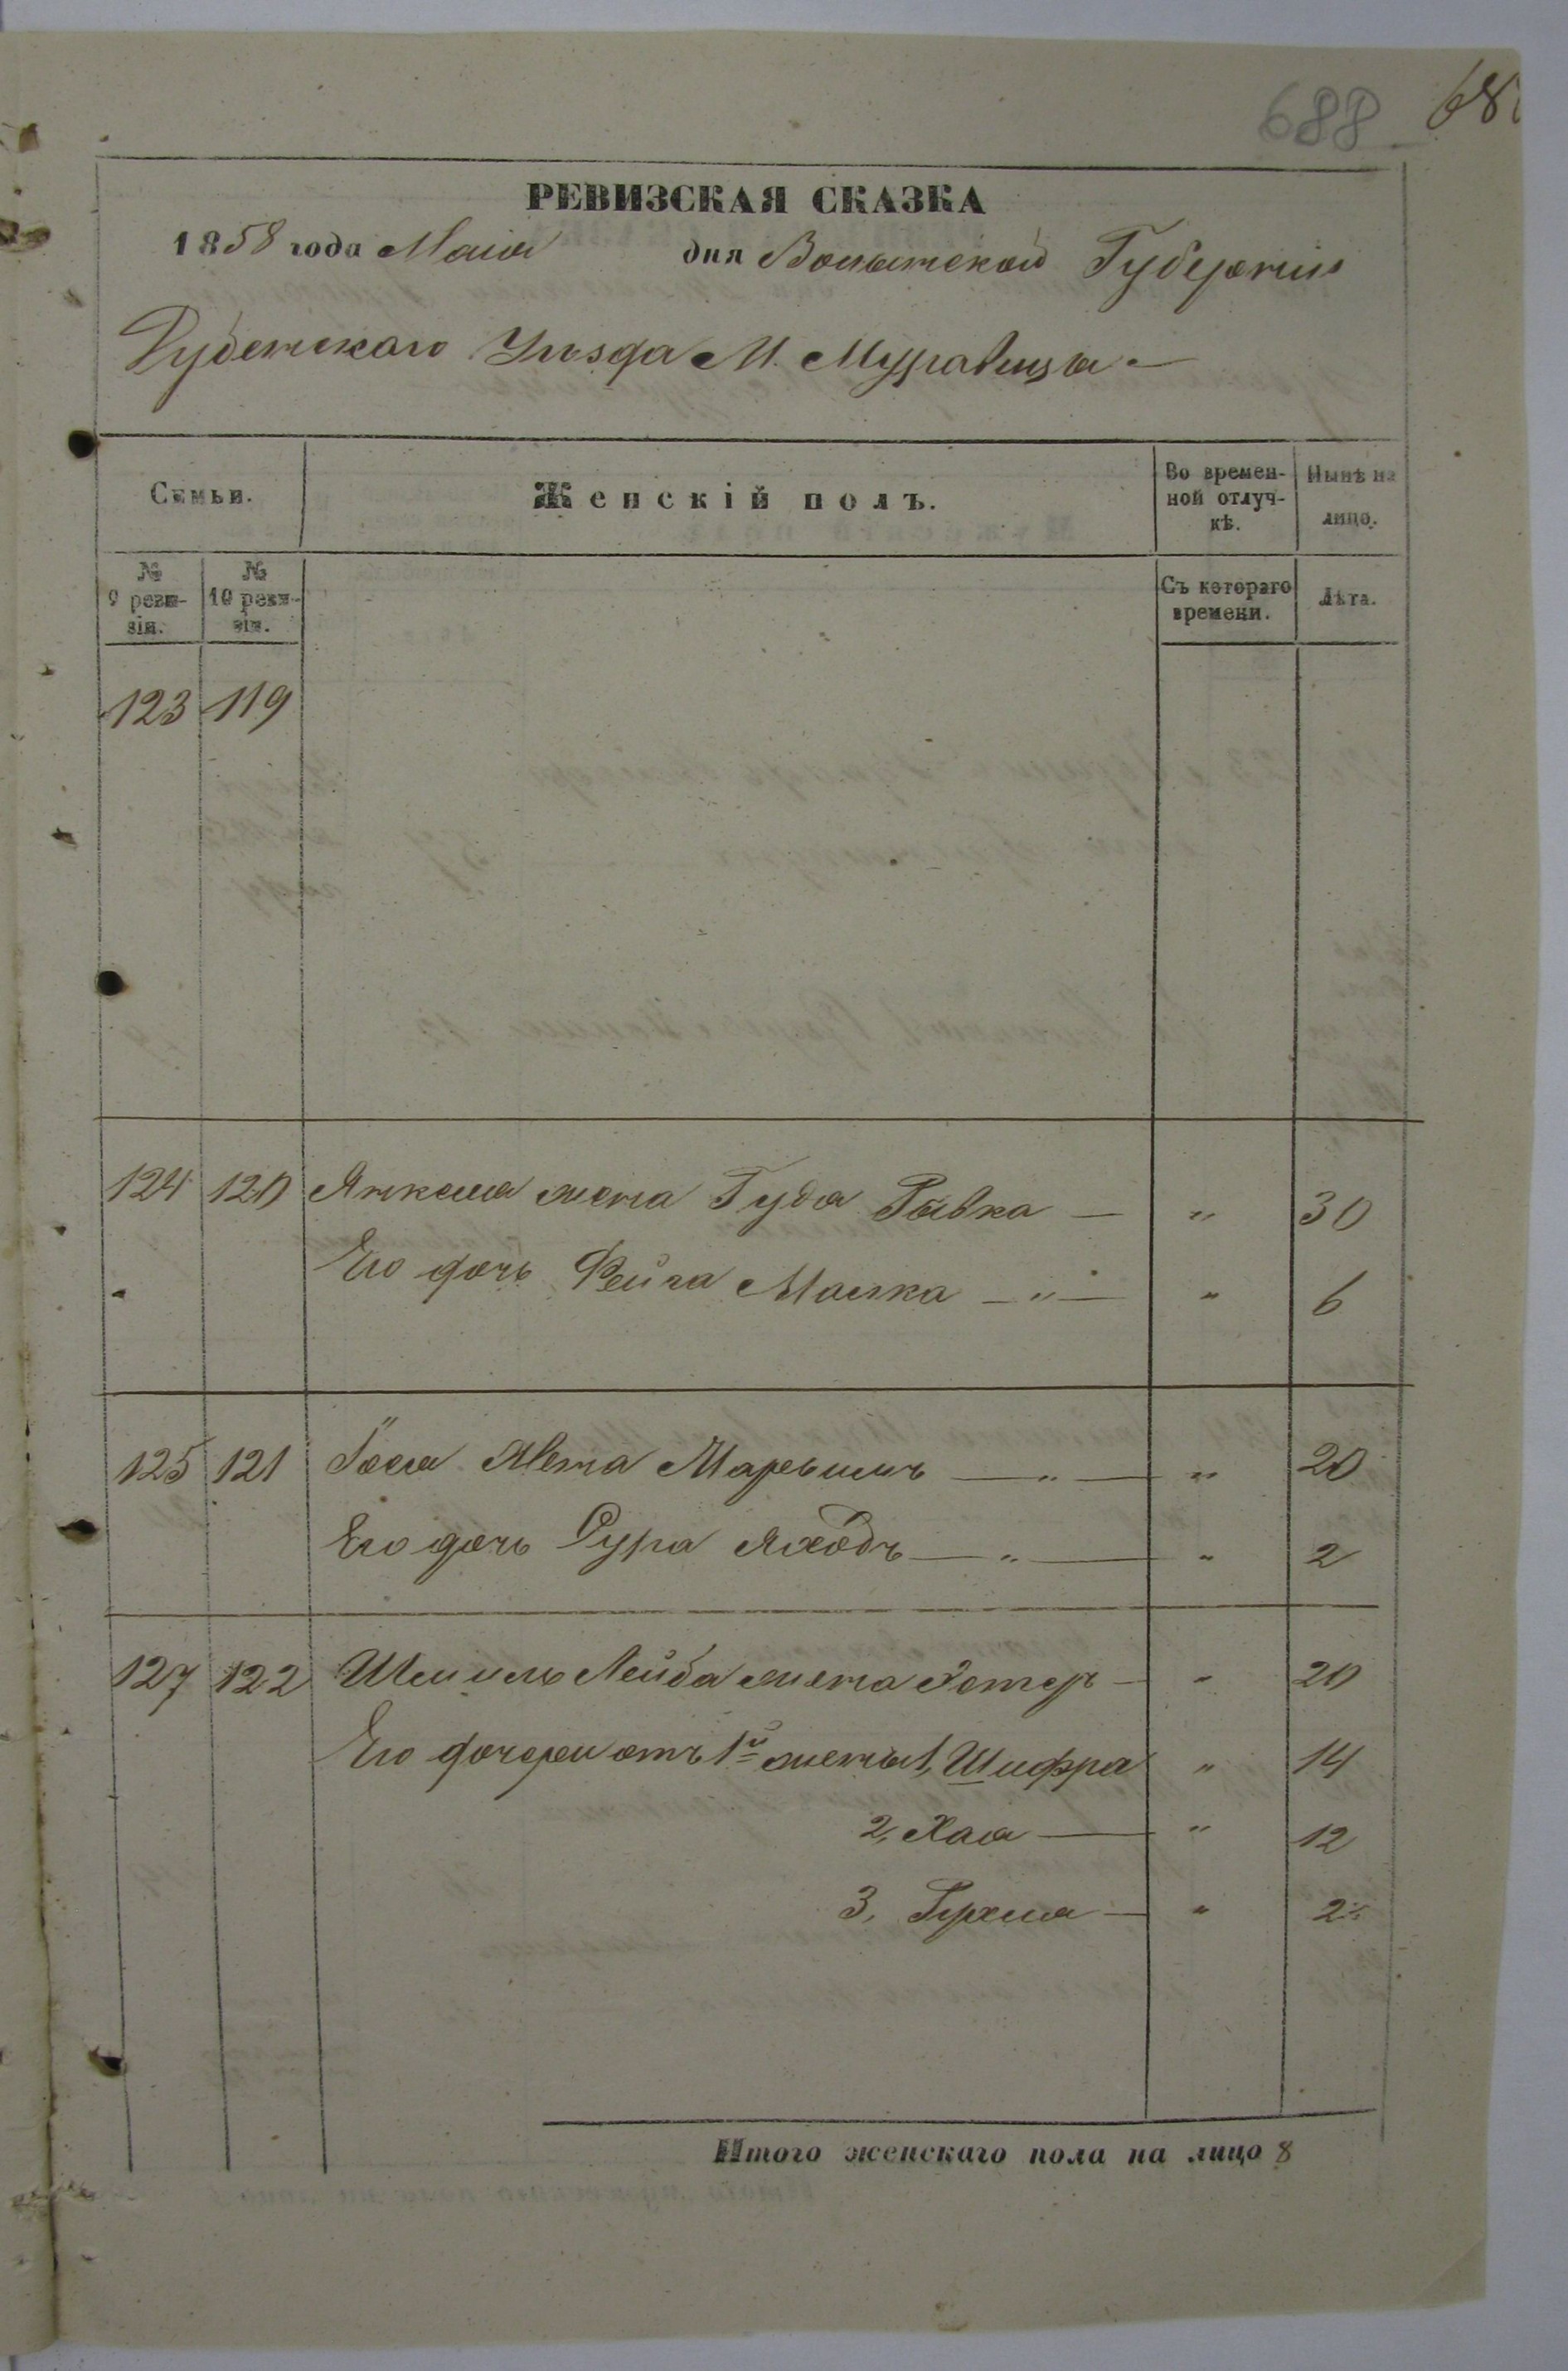 688
РЕВИЗСКАЯ СКАЗКА
1858 года Маія дня Волынской Губерніи
Дубенскаго Уѣзда М. Муравица
Семьи. Женскій полъ. Во временной отлучкѣ. Нынѣ на лицо.
№ 9 ревизіи. № 10 ревизіи. Съ котораго времени. Лѣта.
123 119
124 120 Янкеля жена Гуда Ривка — " 30
Его дочь Фейга Малка — " — " 6
125 121 Жена — " — " 20
Его дочь Сура — " — " 2
127 122 Лейба жена Эстеръ — " 20
Его дочери отъ 1й жены 1, Шифра " 14
2, Хая — " 12
3, — " 2
Итого женскаго пола на лицо 8